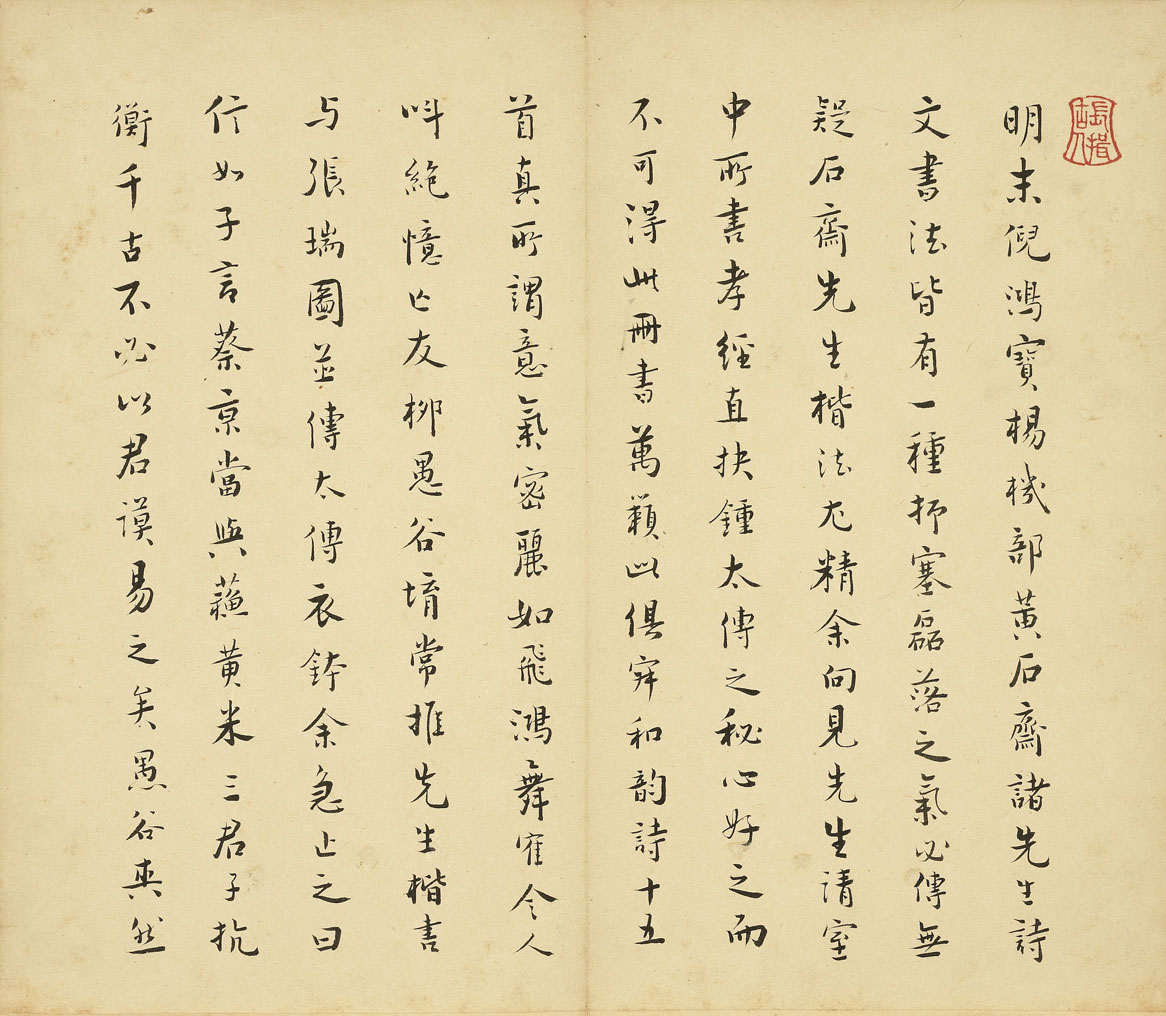 明末倪鴻寶楊機部黃石齋諸先生詩
文書法皆有一種抑塞磊落之氣必傳無
疑石齋先生楷法尤精余向見先生請室
中所書孝經直抉鍾太傅之秘心好之而
不可得此冊書萬籟此俱寂和韵詩十五
首真所謂意氣密麗如飛鴻舞隺令人
叫絕憶亡友柳愚谷堉常推先生楷書
与張瑞圖並傳太傅衣鉢余急止之曰
信如子言蔡京當與蘇黃米三君子抗
衡千古不必以君謨易之矣愚谷爽然